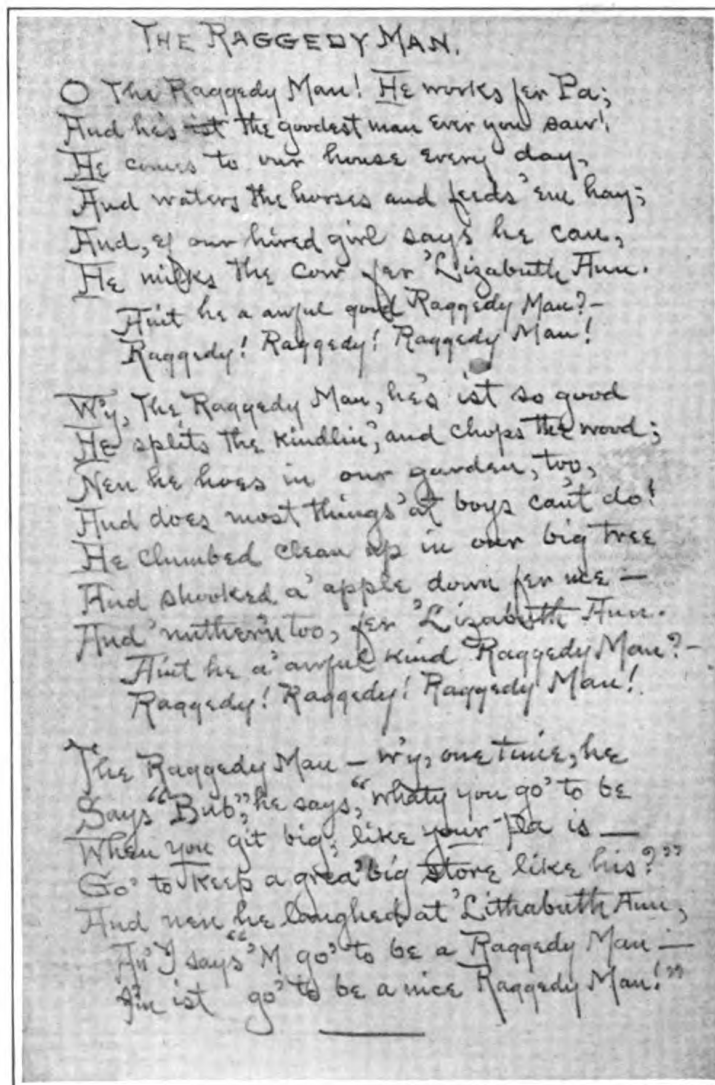 THE RAGGEDY MAN.
O The Raggedy Man! He works fer Pa;
And he's ist the goodest man ever you saw!
He comes to our house every day,
And waters the horses and feeds 'em hay;
And, ef our hired girl says he can,
He milks the cow fer 'Lizabuth Ann.
Aint he a awful good Raggedy Man?—
Raggedy! Raggedy! Raggedy Man!
W'y, The Raggedy Man, he's ist so good
He splits the kindlin', and chops the wood;
Nen he hoes in our garden, too,
And does most things 'at boys can't do!
He clumbed clean up in our big tree
And shooked a' apple down fer me—
And 'nuther'n too, fer 'Lizabuth Ann.
Aint he a' awful kind Raggedy Man?—
Raggedy! Raggedy! Raggedy Man!
The Raggedy Man—w'y, one time, he
Says "Bub," he says, "whaty you go' to be
When you git big, like your Pa is—
Go' to keep a grea' big store like his?"
And nen he laughed at 'Lithabuth Ann,
An' I says "'M go' to be a Raggedy Man—
I'm ist go' to be a nice Raggedy Man!"